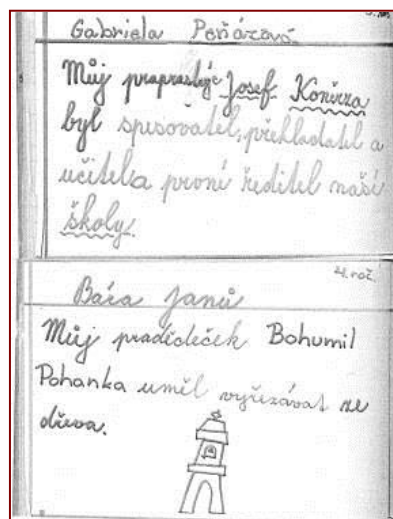 Gabriela Peňázová
Můj praprastrýc Josef Koněrza
byl spisovatel, překladatel a
učitel a první ředitel naší
školy.
4. roč.
Bára Janů
Můj pradědeček Bohumil
Pohanka uměl vyřezávat ze
dřeva.